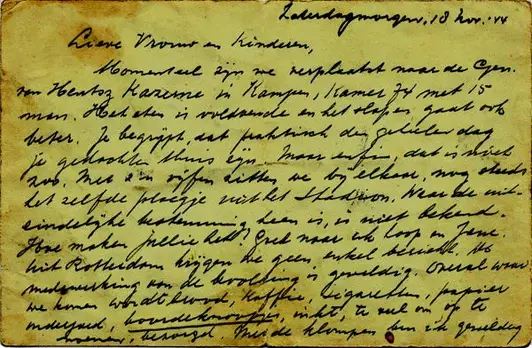 Zaterdagmorgen, 18 Nov. '44
Lieve Vrouw en Kinderen,
Momenteel zijn we verplaatst naar de Gen.
van Heutsz Kazerne in Kampen, Kamer 74 met 15
man. Het eten is voldoende en het slapen gaat ook
beter. Je begrijpt, dat praktisch den geheelen dag
je gedachten thuis zijn. Maar enfin, dat is niet
zoo. Met z'n vijfen zitten we bij elkaar, nog steeds
het zelfde ploegje uit het Stadion. Waar de uit-
eindelijke bestemming heen is, is niet bekend.
Hoe maken jullie het? Goed naar ik hoop en Jene.
Uit Rotterdam krijgen we geen enkel bericht. De
medewerking van de bevolking is geweldig. Overal waar
we komen wordt brood, koffie, cigaretten, papier
ondergoed, boordeknoopjes, inkt, te veel om op te
noemen, bezorgd. Met de klompen ben ik geweldig